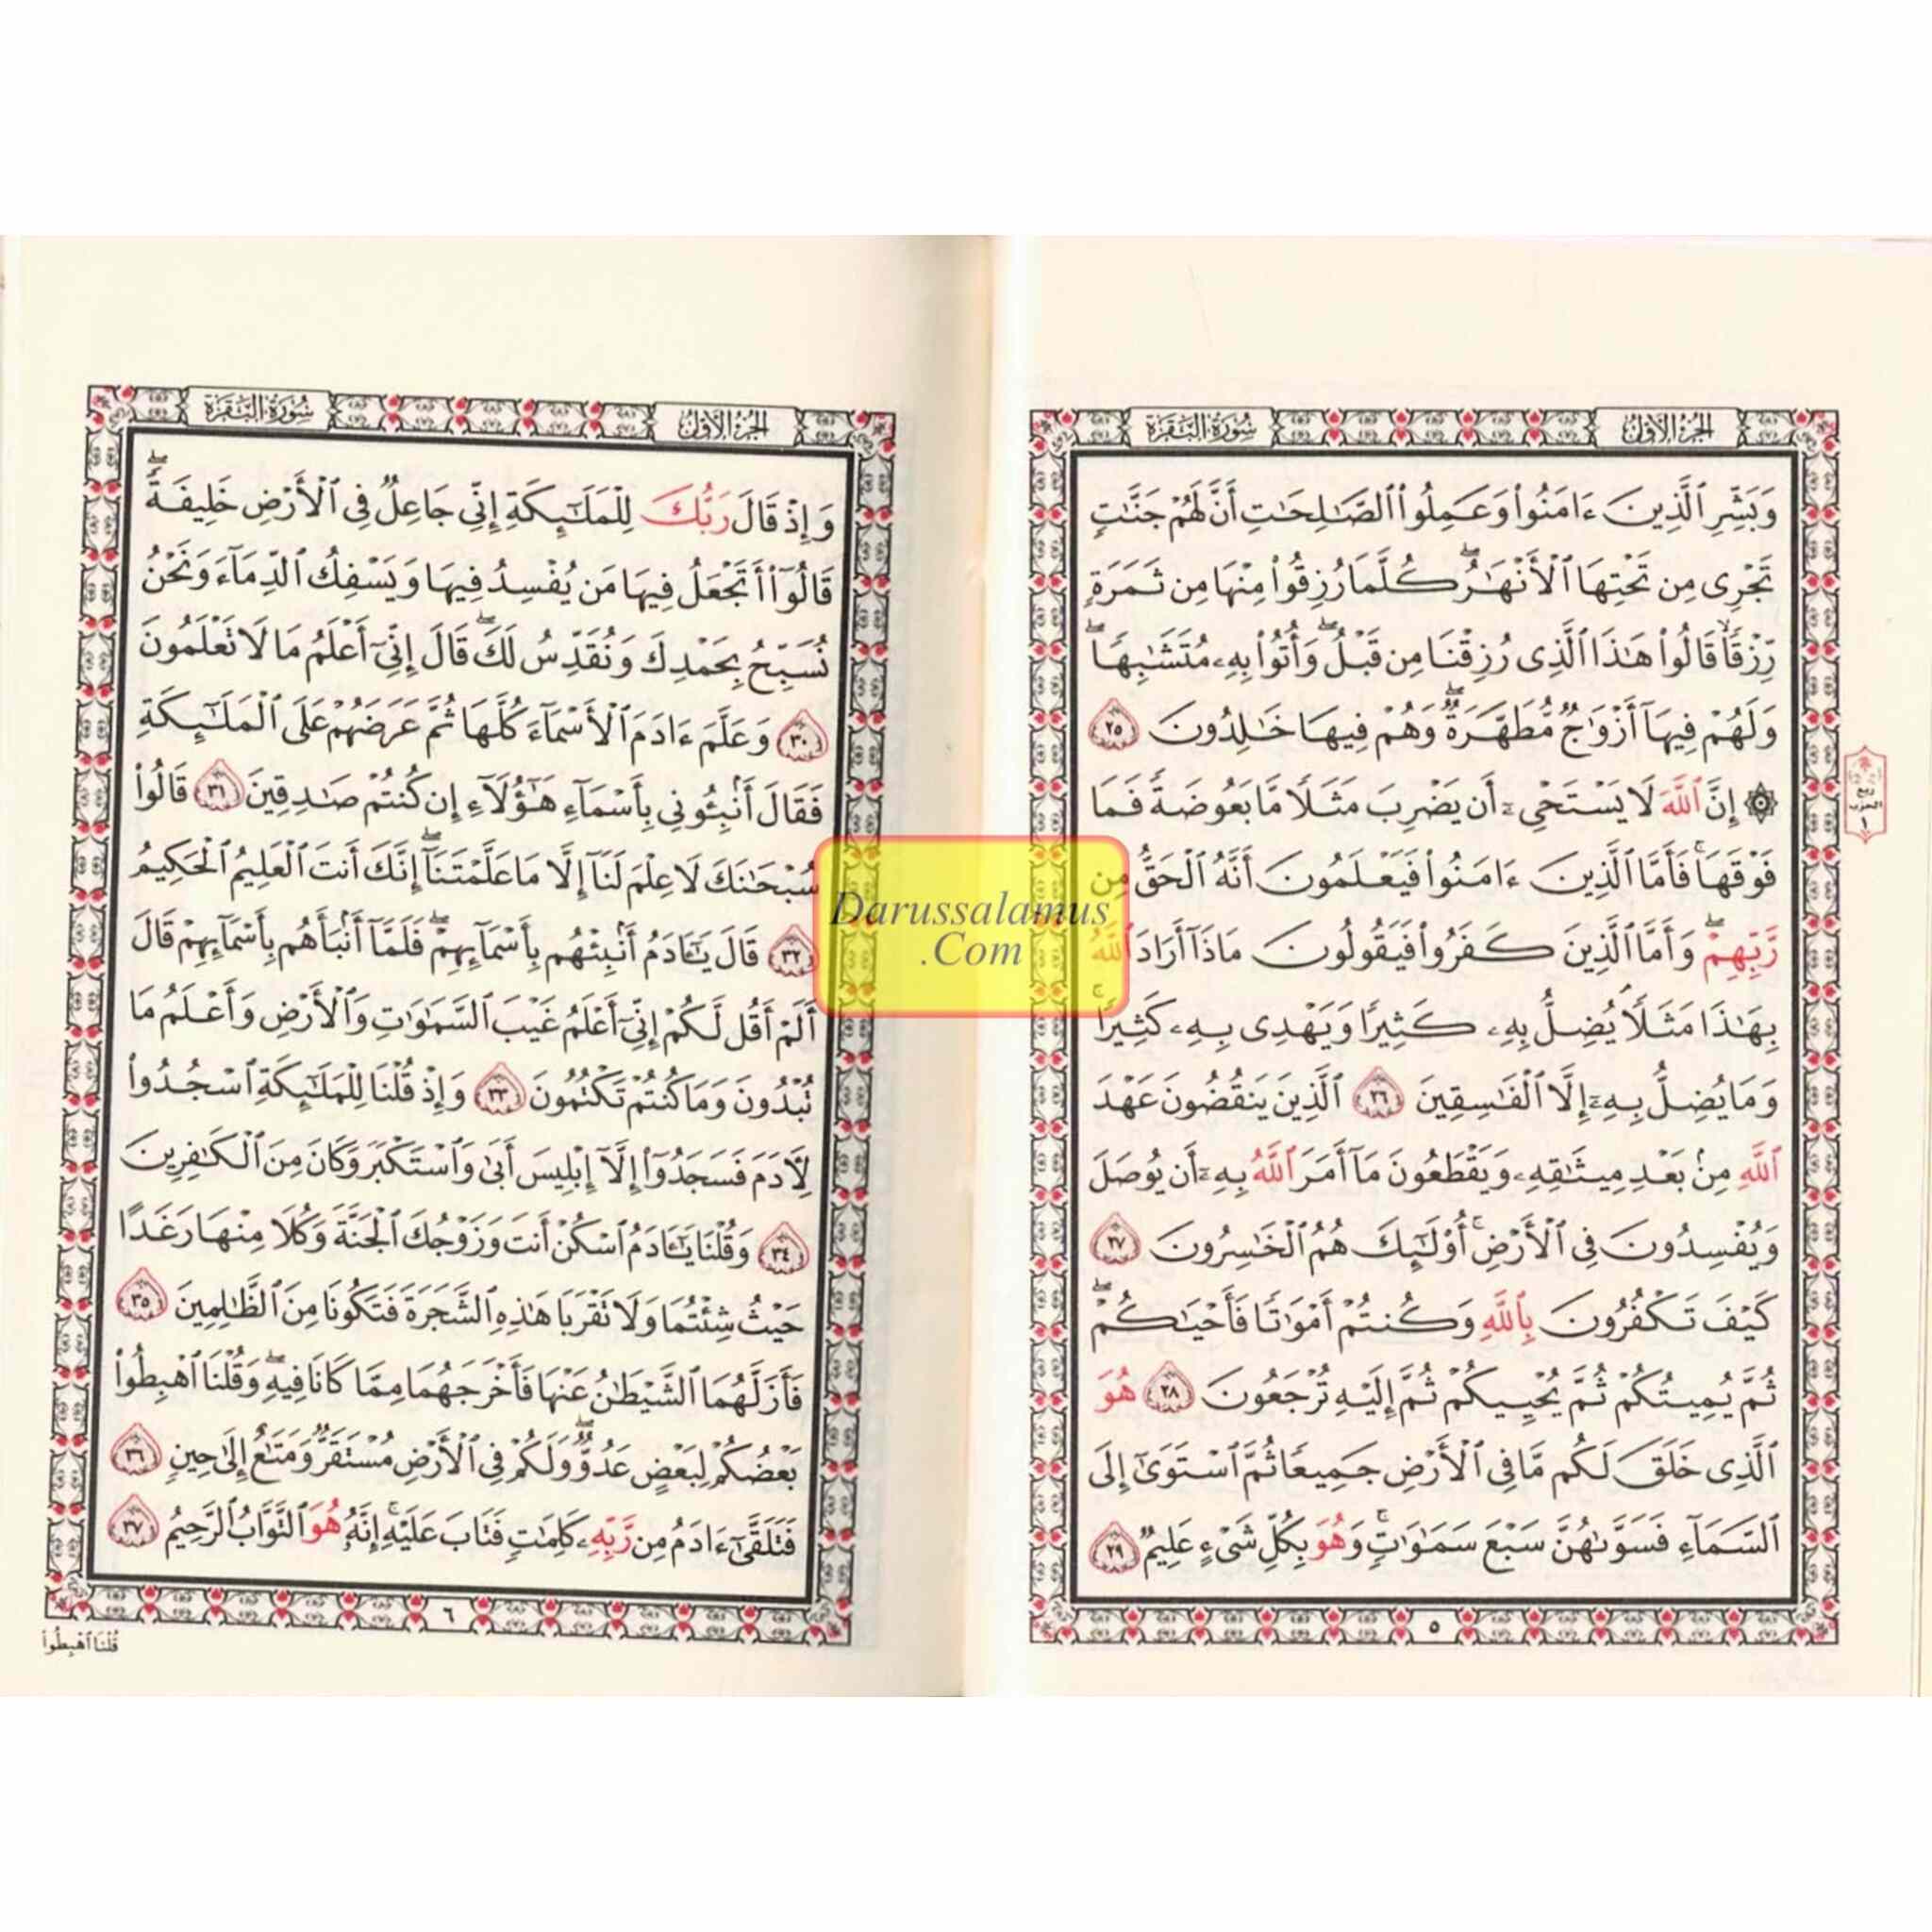 الجزء الأول
سورة البقرة
وَبَشِّرِ ٱلَّذِينَ ءَامَنُوا۟ وَعَمِلُوا۟ ٱلصَّـٰلِحَـٰتِ أَنَّ لَهُمْ جَنَّـٰتٍ
تَجْرِى مِن تَحْتِهَا ٱلْأَنْهَـٰرُ ۖ كُلَّمَا رُزِقُوا۟ مِنْهَا مِن ثَمَرَةٍ
رِّزْقًا ۙ قَالُوا۟ هَـٰذَا ٱلَّذِى رُزِقْنَا مِن قَبْلُ ۖ وَأُتُوا۟ بِهِۦ مُتَشَـٰبِهًا ۖ
وَلَهُمْ فِيهَآ أَزْوَٰجٌ مُّطَهَّرَةٌ ۖ وَهُمْ فِيهَا خَـٰلِدُونَ ٢٥
۞ إِنَّ ٱللَّهَ لَا يَسْتَحْىِۦٓ أَن يَضْرِبَ مَثَلًا مَّا بَعُوضَةً فَمَا
فَوْقَهَا ۚ فَأَمَّا ٱلَّذِينَ ءَامَنُوا۟ فَيَعْلَمُونَ أَنَّهُ ٱلْحَقُّ مِن
رَّبِّهِمْ ۖ وَأَمَّا ٱلَّذِينَ كَفَرُوا۟ فَيَقُولُونَ مَاذَآ أَرَادَ ٱللَّهُ
بِهَـٰذَا مَثَلًا ۘ يُضِلُّ بِهِۦ كَثِيرًا وَيَهْدِى بِهِۦ كَثِيرًا ۚ
وَمَا يُضِلُّ بِهِۦٓ إِلَّا ٱلْفَـٰسِقِينَ ٢٦ ٱلَّذِينَ يَنقُضُونَ عَهْدَ
ٱللَّهِ مِنۢ بَعْدِ مِيثَـٰقِهِۦ وَيَقْطَعُونَ مَآ أَمَرَ ٱللَّهُ بِهِۦٓ أَن يُوصَلَ
وَيُفْسِدُونَ فِى ٱلْأَرْضِ ۚ أُو۟لَـٰٓئِكَ هُمُ ٱلْخَـٰسِرُونَ ٢٧
كَيْفَ تَكْفُرُونَ بِٱللَّهِ وَكُنتُمْ أَمْوَٰتًا فَأَحْيَـٰكُمْ ۖ
ثُمَّ يُمِيتُكُمْ ثُمَّ يُحْيِيكُمْ ثُمَّ إِلَيْهِ تُرْجَعُونَ ٢٨ هُوَ
ٱلَّذِى خَلَقَ لَكُم مَّا فِى ٱلْأَرْضِ جَمِيعًا ثُمَّ ٱسْتَوَىٰٓ إِلَى
ٱلسَّمَآءِ فَسَوَّىٰهُنَّ سَبْعَ سَمَـٰوَٰتٍ ۚ وَهُوَ بِكُلِّ شَىْءٍ عَلِيمٌ ٢٩
٥
الجزء الأول
سورة البقرة
وَإِذْ قَالَ رَبُّكَ لِلْمَلَـٰٓئِكَةِ إِنِّى جَاعِلٌ فِى ٱلْأَرْضِ خَلِيفَةً ۖ
قَالُوٓا۟ أَتَجْعَلُ فِيهَا مَن يُفْسِدُ فِيهَا وَيَسْفِكُ ٱلدِّمَآءَ وَنَحْنُ
نُسَبِّحُ بِحَمْدِكَ وَنُقَدِّسُ لَكَ ۖ قَالَ إِنِّىٓ أَعْلَمُ مَا لَا تَعْلَمُونَ
٣٠ وَعَلَّمَ ءَادَمَ ٱلْأَسْمَآءَ كُلَّهَا ثُمَّ عَرَضَهُمْ عَلَى ٱلْمَلَـٰٓئِكَةِ
فَقَالَ أَنۢبِـُٔونِى بِأَسْمَآءِ هَـٰٓؤُلَآءِ إِن كُنتُمْ صَـٰدِقِينَ ٣١ قَالُوا۟
سُبْحَـٰنَكَ لَا عِلْمَ لَنَآ إِلَّا مَا عَلَّمْتَنَآ ۖ إِنَّكَ أَنتَ ٱلْعَلِيمُ ٱلْحَكِيمُ
٣٢ قَالَ يَـٰٓـَٔادَمُ أَنۢبِئْهُم بِأَسْمَآئِهِمْ ۖ فَلَمَّآ أَنۢبَأَهُم بِأَسْمَآئِهِمْ قَالَ
أَلَمْ أَقُل لَّكُمْ إِنِّىٓ أَعْلَمُ غَيْبَ ٱلسَّمَـٰوَٰتِ وَٱلْأَرْضِ وَأَعْلَمُ مَا
تُبْدُونَ وَمَا كُنتُمْ تَكْتُمُونَ ٣٣ وَإِذْ قُلْنَا لِلْمَلَـٰٓئِكَةِ ٱسْجُدُوا۟
لِـَٔادَمَ فَسَجَدُوٓا۟ إِلَّآ إِبْلِيسَ أَبَىٰ وَٱسْتَكْبَرَ وَكَانَ مِنَ ٱلْكَـٰفِرِينَ
٣٤ وَقُلْنَا يَـٰٓـَٔادَمُ ٱسْكُنْ أَنتَ وَزَوْجُكَ ٱلْجَنَّةَ وَكُلَا مِنْهَا رَغَدًا
حَيْثُ شِئْتُمَا وَلَا تَقْرَبَا هَـٰذِهِ ٱلشَّجَرَةَ فَتَكُونَا مِنَ ٱلظَّـٰلِمِينَ ٣٥
فَأَزَلَّهُمَا ٱلشَّيْطَـٰنُ عَنْهَا فَأَخْرَجَهُمَا مِمَّا كَانَا فِيهِ ۖ وَقُلْنَا ٱهْبِطُوا۟
بَعْضُكُمْ لِبَعْضٍ عَدُوٌّ ۖ وَلَكُمْ فِى ٱلْأَرْضِ مُسْتَقَرٌّ وَمَتَـٰعٌ إِلَىٰ حِينٍ ٣٦
فَتَلَقَّىٰٓ ءَادَمُ مِن رَّبِّهِۦ كَلِمَـٰتٍ فَتَابَ عَلَيْهِ ۚ إِنَّهُۥ هُوَ ٱلتَّوَّابُ ٱلرَّحِيمُ ٣٧
٦
قُلْنَا ٱهْبِطُوا۟
Darussalamus
.Com